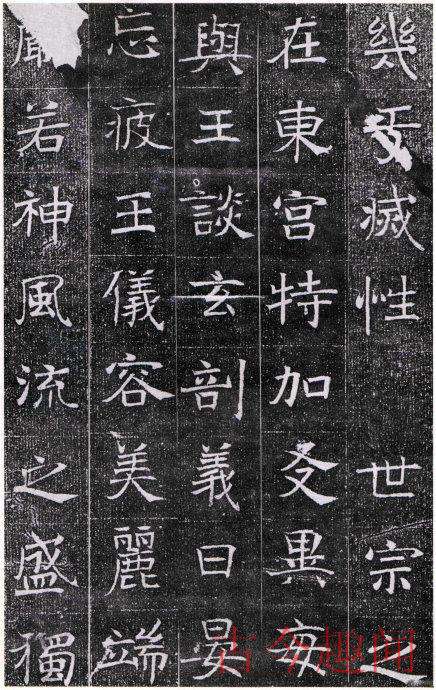 幾于滅性 世宗之
在東宮特加友異每
與王談玄剖義日晏
忘疲王儀容美麗端
若神風流之盛獨
古今趣闻